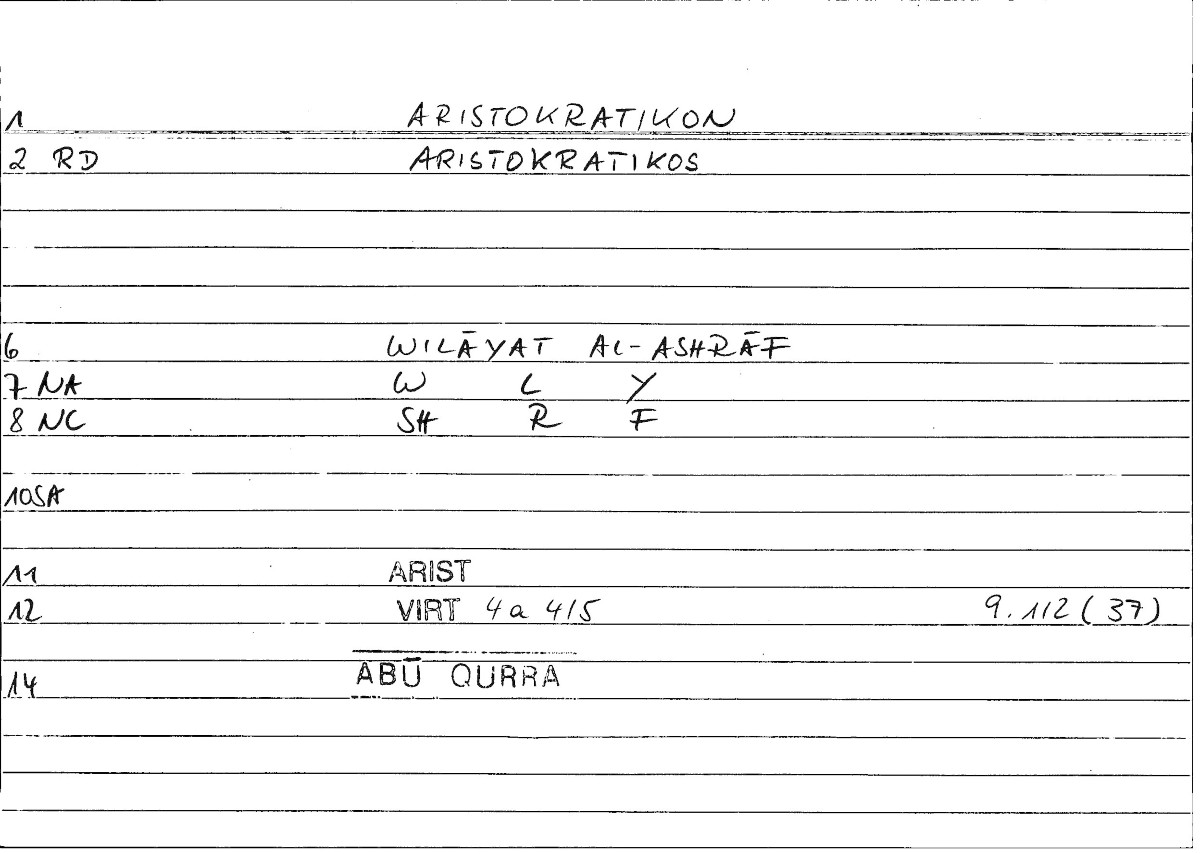 1 ARISTOKRATIKON
2 RD ARISTOKRATIKOS
6 WILĀYAT AL-ASHRĀF
7 NA W L Y
8 NC SH R F
10SA
11 ARIST
12 VIRT 4a 4/5 9.1/2 (37)
14 ABŪ QURRA